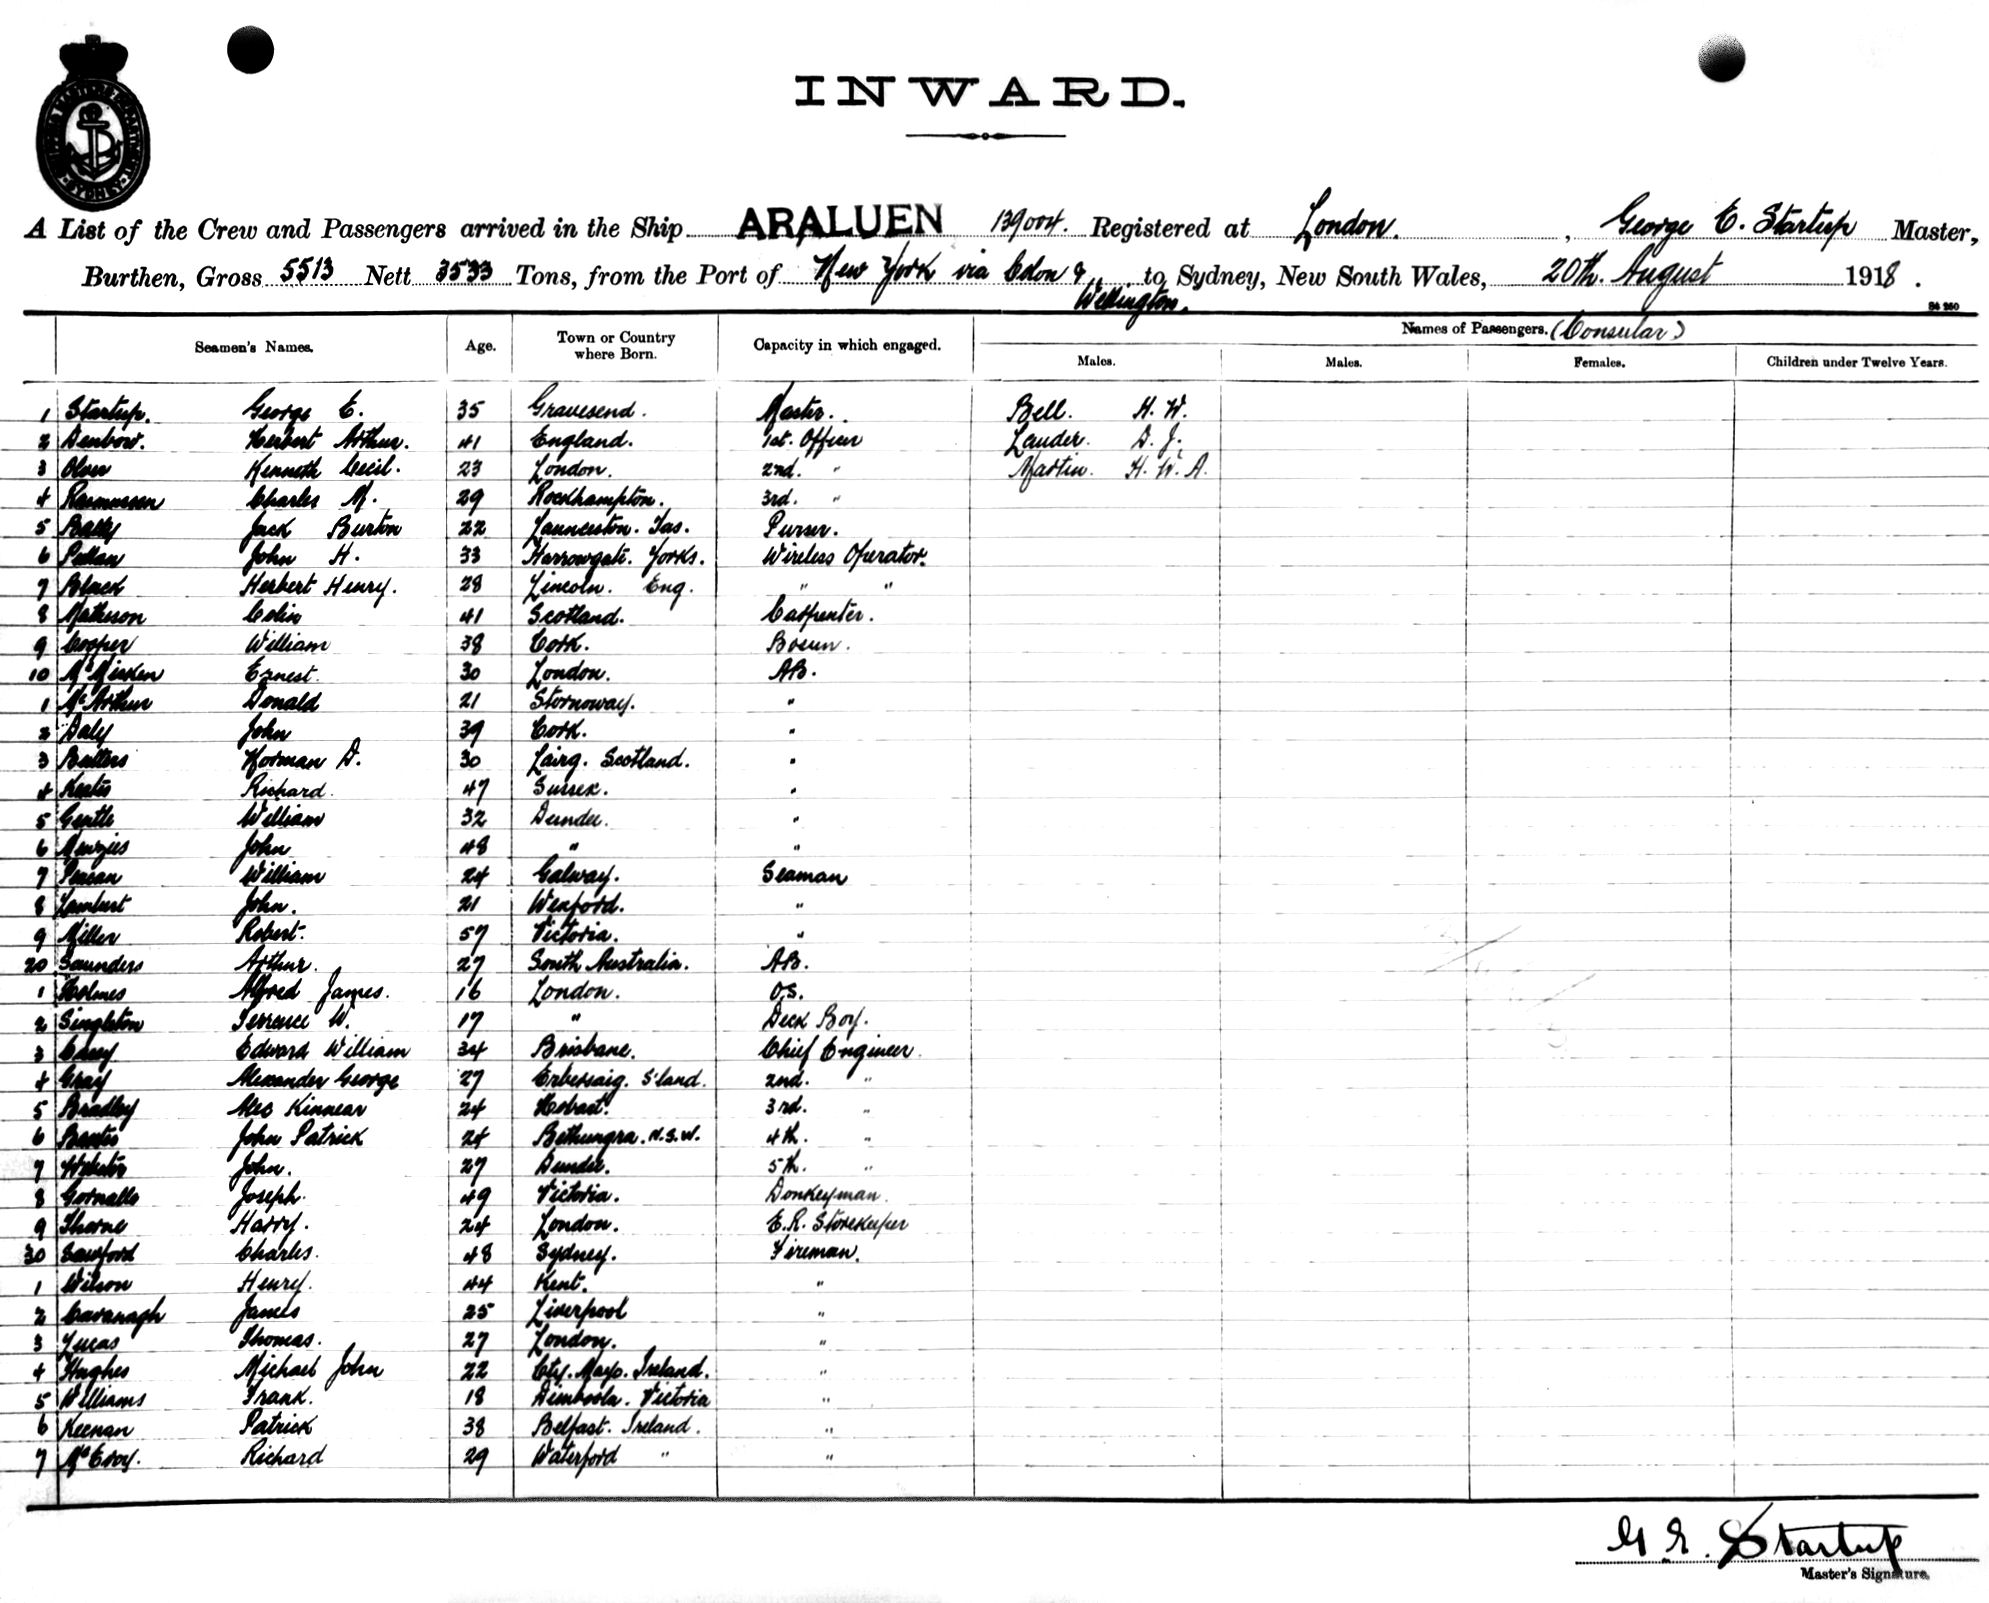 INWARD.
A List of the Crew and Passengers arrived in the Ship ARALUEN 139004. Registered at London. , George E. Startup Master,
Burthen, Gross 5513 Nett 3533 Tons, from the Port of New York via Colon & Wellington. to Sydney, New South Wales, 20th. August 1918.
Seamen's Names. Age. Town or Country where Born. Capacity in which engaged. Names of Passengers. (Consular)
Males. Males. Females. Children under Twelve Years.
1 Startup. George E. 35 Gravesend. Master. Bell. H. W.
2 Denbow. Herbert Arthur. 41 England. 1st. Officer Lauder. D. J.
3 Olver Kenneth Cecil. 23 London. 2nd. " Martin. H. W. A.
4 Rasmussen Charles M. 29 Rockhampton. 3rd. "
5 Jack Burton 22 Launceston. Tas. Purser.
6 John H. 33 Harrowgate. Yorks. Wireless Operator.
7 Black Herbert Henry. 28 Lincoln. Eng. " "
8 Matheson Colin 41 Scotland. Carpenter.
9 Cooper William 38 Cork. Bosun.
10 Ernest. 30 London. AB.
1 McArthur Donald 21 Stornoway. "
2 Daly John 39 Cork. "
3 Butters Norman D. 30 Lairg. Scotland. "
4 Richard. 47 Sussex. "
5 Gentle William 32 Dundee. "
6 Menzies John 48 " "
7 William 24 Galway. Seaman
8 Lambert John. 21 Wexford. "
9 Miller Robert. 57 Victoria. "
20 Saunders Arthur. 27 South Australia. AB.
1 Holmes Alfred James. 16 London. O.S.
2 Singleton Terrence W. 17 " Deck Boy.
3 Edward William 34 Brisbane. Chief Engineer.
4 Gray Alexander George 27 S'land. 2nd. "
5 Bradley Alec Kinnear 24 Hobart. 3rd. "
6 John Patrick 24 Bethungra. N.S.W. 4th. "
7 Webster John. 27 Dundee. 5th. "
8 Joseph. 49 Victoria. Donkeyman.
9 Thorne Harry. 24 London. E.R. Storekeeper
30 Sawford Charles. 48 Sydney. Fireman.
1 Wilson Henry. 44 Kent. "
2 Cavanagh James 25 Liverpool "
3 Lucas Thomas. 27 London. "
4 Hughes Michael John 22 Cty. Mayo. Ireland. "
5 Williams Frank. 18 Dimboola. Victoria "
6 Keenan Patrick 38 Belfast. Ireland. "
7 McEvoy. Richard 29 Waterford " "
G. E. Startup
Master's Signature.